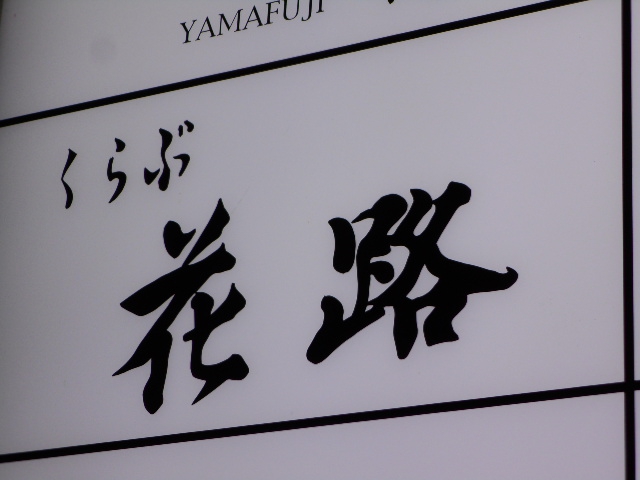 YAMAFUJI
くらぶ
花路